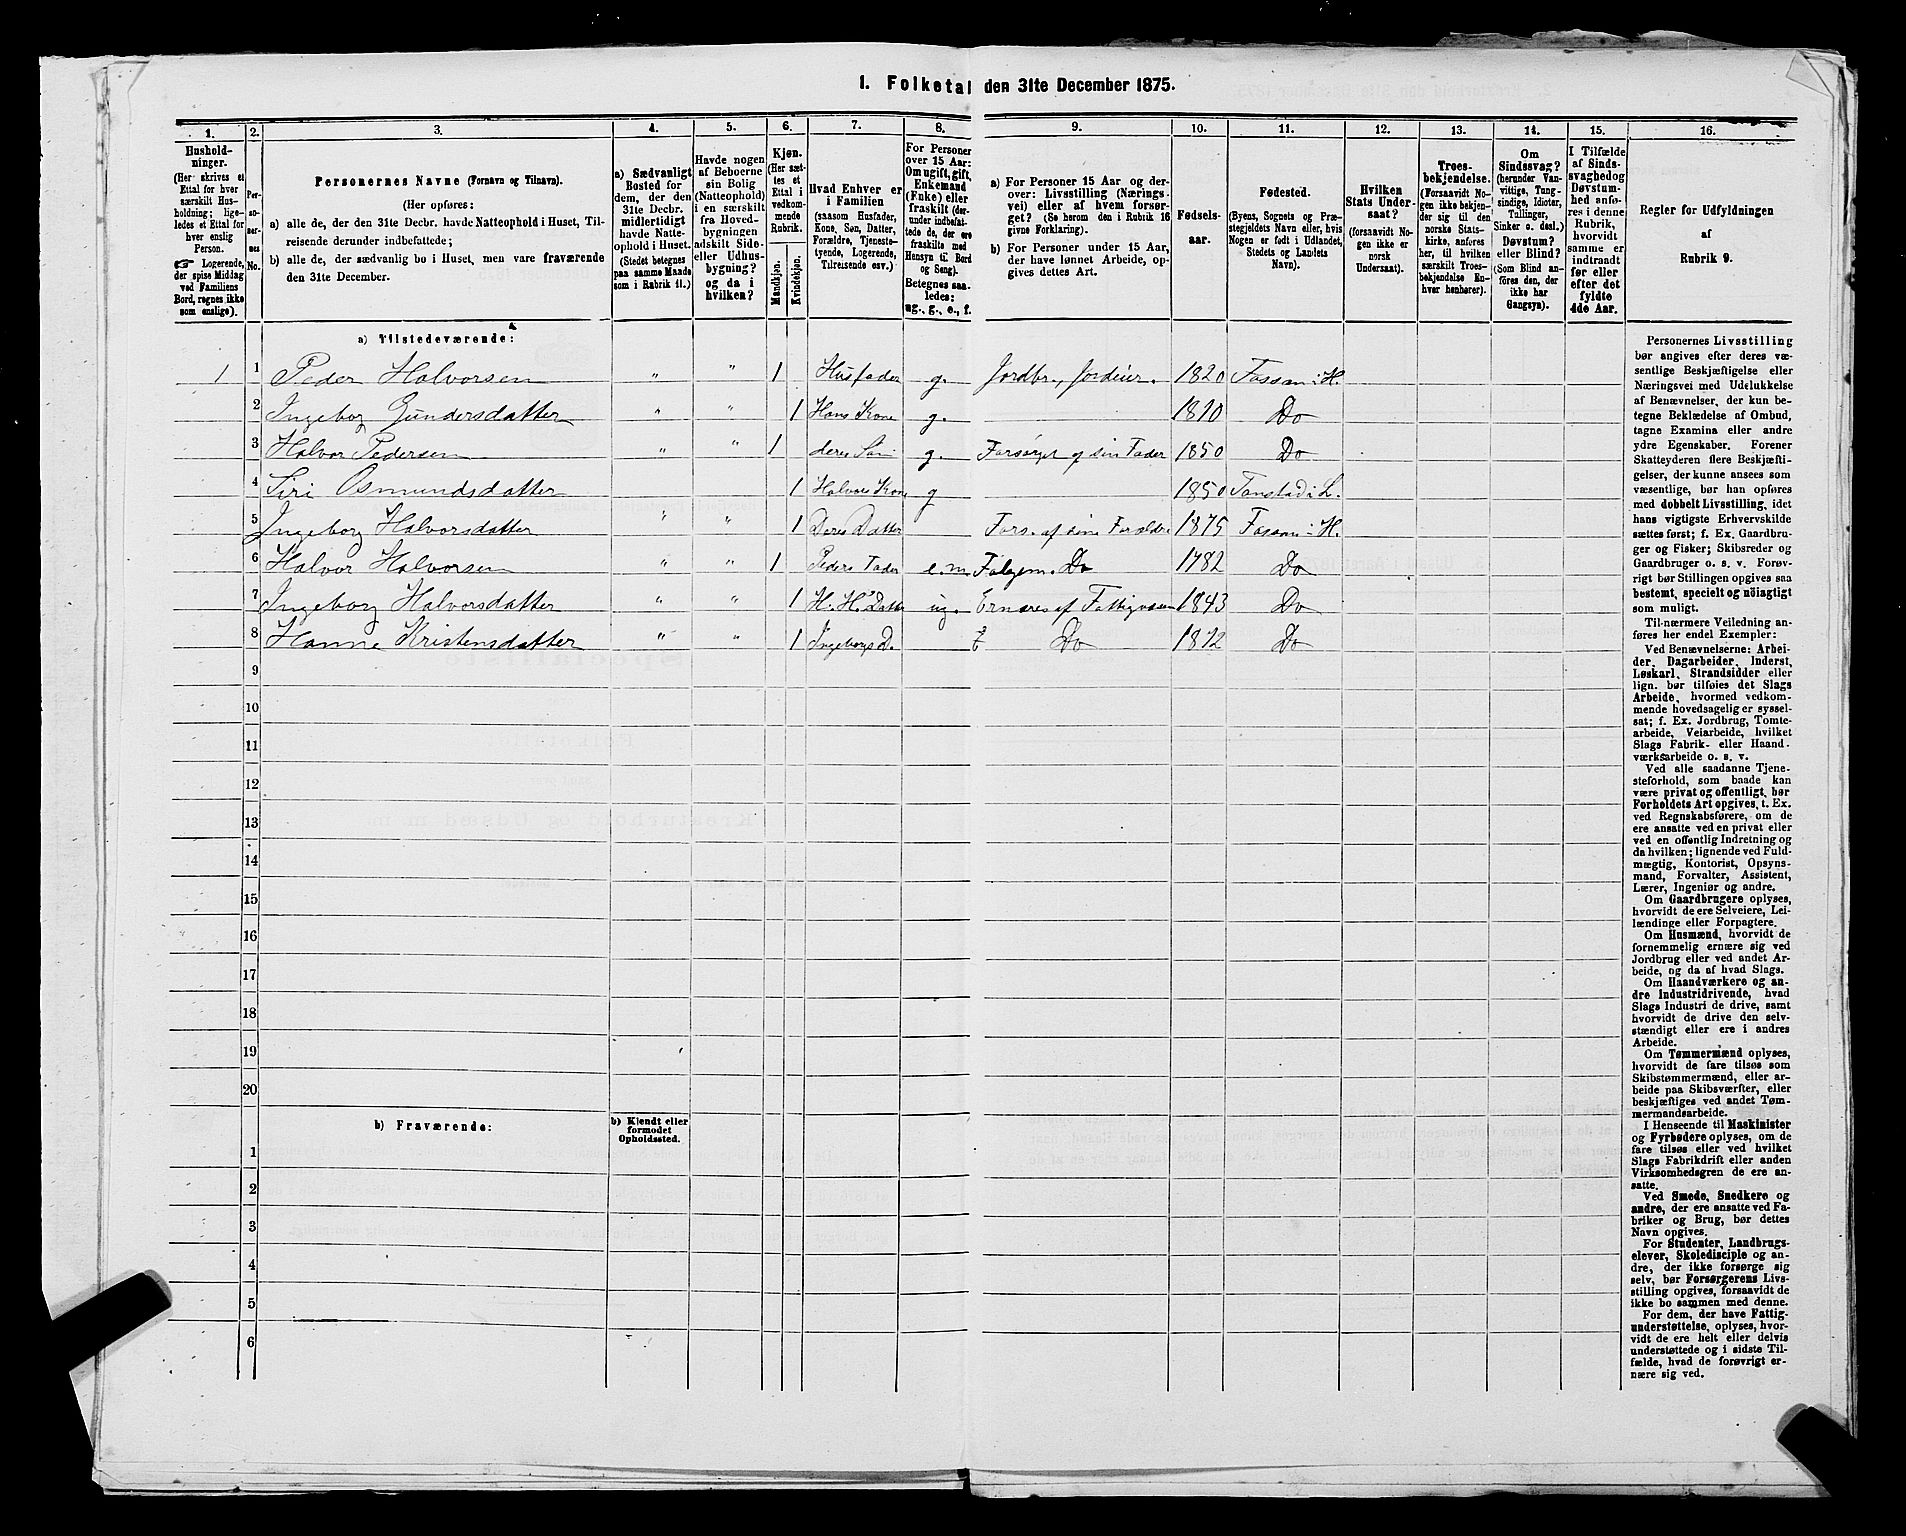 1. Folketal den 31te December 1875.
1. 2. 3. 4. 5. 6. 7. 8. 9. 10. 11. 12. 13. 14. 15. 16.
Hushold-
ninger.
(Her skrives et
Ettal for hver
særskilt Hus-
holdning; lige-
ledes et Ettal for
hver enslig
Person.
☞ Logerende,
der spise Middag
ved Familiens
Bord, regnes ikke
som enslige).
Per-
so-
ner-
nes
No.
Personernes Navne (Fornavn og Tilnavn).
(Her opføres:
a) alle de, der den 31te Decbr. havde Natteophold i Huset, Til-
reisende derunder indbefattede;
b) alle de, der sædvanlig bo i Huset, men vare fraværende
den 31te December.
a) Sædvanligt
Bosted for
dem, der den
31te Decbr.
midlertidigt
havde Natte-
ophold i Huset.
(Stedet betegnes
paa samme Maade
som i Rubrik 11.)
Havde nogen
af Beboerne
sin Bolig
(Natteophold)
i en særskilt
fra Hoved-
bygningen
adskilt Side-
eller Udhus-
bygning?
og da i
hvilken?
Kjøn.
(Her sæt-
tes et
Ettal i
vedkom-
mende
Rubrik.
Mandkjøn.
Kvindekjøn.
Hvad Enhver er
i Familien
(saasom Husfader,
Kone, Søn, Datter,
Forældre, Tjeneste-
tyende, Logerende,
Tilreisende osv.)
For Personer
over 15 Aar:
Om ugift, gift,
Enkemand
(Enke) eller
fraskilt (der-
under indbefat-
tede de, der ere
fraskilte med
Hensyn til Bord
og Seng).
Betegnes saa-
ledes:
ug., g., e., f.
a) For Personer 15 Aar og der-
over: Livsstilling (Nærings-
vei) eller af hvem forsør-
get? (Se herom den i Rubrik 16
givne Forklaring).
b) For Personer under 15 Aar,
der have lønnet Arbeide, op-
gives dettes Art.
Fødsels-
aar.
Fødested.
(Byens, Sognets og Præ-
stegjeldets Navn eller, hvis
Nogen er født i Udlandet,
Stedets og Landets
Navn).
Hvilken
Stats Under-
saat?
(forsaavidt No-
gen ikke er
norsk
Undersaat).
Troes-
bekjendelse.
(Forsaavidt No-
gen ikke bekjen-
der sig til den
norske Stats-
kirke, anføres
her, til hvilken
særskilt Troes-
bekjendelse En-
hver henhører).
Om
Sindssvag?
(herunder Van-
vittige, Tung-
sindige, Idioter,
Tullinger,
Sinker o. desl.)
Døvstum?
eller Blind?
(Som Blind an-
føres den, der
ikke har
Gangsyn).
I Tilfælde
af Sinds-
svaghed og
Døvstum-
hed anfø-
res i denne
Rubrik,
hvorvidt
samme er
indtraadt
før eller
efter det
fyldte
4de Aar.
Regler for Udfyldningen
af
Rubrik 9.
a) Tilstedeværende:
1 1 Peder Halvorsen " " 1 Husfader g. Jordbr., Jordeier. 1820 Fossan i H.
2 Ingeborg Gundersdatter " " 1 Hans Kone g. 1810 Do
3 Halvor Pedersen " " 1 deres Søn g. Forsørget af sin Fader 1850 Do
4 Siri Osmundsdatter 1 Halvors Kone g 1850 Tanstad i L.
5 Ingeborg Halvorsdatter " " 1 Deres Datter Fors. af sine Forældre 1875 Fossan i H.
6 Halvor Halvorsen " " 1 Peders Fader e.m. Do 1782 Do
7 Ingeborg Halvorsdatter " " 1 H. H.s Datter ug. Ernæres af Fattigvæsen 1843 Do
8 Hanne Kristensdatter " " 1 Ingeborgs D. Do 1872 Do
9
10
11
12
13
14
15
16
17
18
19
20
b) Fraværende:
b) Kjendt eller
formodet
Opholdssted.
1
2
3
4
5
6
Personernes Livsstilling
bør angives efter deres væ-
sentlige Beskjæftigelse eller
Næringsvei med Udelukkelse
af Benævnelser, der kun be-
tegne Beklædelse af Ombud,
tagne Examina eller andre
ydre Egenskaber. Forener
Skatteyderen flere Beskjæfti-
gelser, der kunne ansees som
væsentlige, bør han opføres
med dobbelt Livsstilling, idet
hans vigtigste Erhvervskilde
sættes først; f. Ex. Gaardbru-
ger og Fisker; Skibsreder og
Gaardbruger o. s. v. Forøv-
rigt bør Stillingen opgives saa
bestemt, specielt og nøiagtigt
som muligt.
Til nærmere Veiledning an-
føres her endel Exempler:
Ved Benævnelserne: Arbei-
der, Dagarbeider, Inderst,
Løskarl, Strandsidder eller
lign. bør tilføies det Slags
Arbeide, hvormed vedkom-
mende hovedsagelig er syssel-
sat; f. Ex. Jordbrug, Tomte-
arbeide, Veiarbeide, hvilket
Slags Fabrik- eller Haand-
værksarbeide o. s. v.
Ved alle saadanne Tjene-
steforhold, som baade kan
være privat og offentligt, bør
Forholdets Art opgives, t. Ex.
ved Regnskabsførere, om de
ere ansatte ved en privat eller
ved en offentlig Indretning og
da hvilken; lignende ved Fuld-
mægtig, Kontorist, Opsyns-
mand, Forvalter, Assistent,
Lærer, Ingeniør og andre.
Om Gaardbrugere oplyses,
hvorvidt de ere Selveiere, Lei-
lændinge eller Forpagtere.
Om Husmænd, hvorvidt de
fornemmelig ernære sig ved
Jordbrug eller ved andet Ar-
beide, og da af hvad Slags.
Om Haandværkere og an-
dre Industridrivende, hvad
Slags Industri de drive, samt
hvorvidt de drive den selv-
stændigt eller ere i andres
Arbeide.
Om Tømmermænd oplyses,
hvorvidt de fare tilsøs som
Skibstømmermænd, eller ar-
beide paa Skibsværfter, eller
beskjæftiges ved andet Tøm-
mermandsarbeide.
I Henseende til Maskinister
og Fyrbødere oplyses, om de
fare tilsøs eller ved hvilket
Slags Fabrikdrift eller anden
Virksomhedsgren de ere an-
satte.
Ved Smede, Snedkere og
andre, der ere ansatte ved Fa-
briker og Brug, bør dettes
Navn opgives.
For Studenter, Landbrugs-
elever, Skoledisciple og an-
dre, der ikke forsørge sig
selv, bør Forsørgerens Livs-
stilling opgives, forsaavidt de
ikke bo sammen med denne.
For dem, der have Fattig-
understøttelse, oplyses, hvor-
vidt de ere helt eller delvis
understøttede og i sidste Til-
fælde, hvad de forøvrigt er-
nære sig ved.